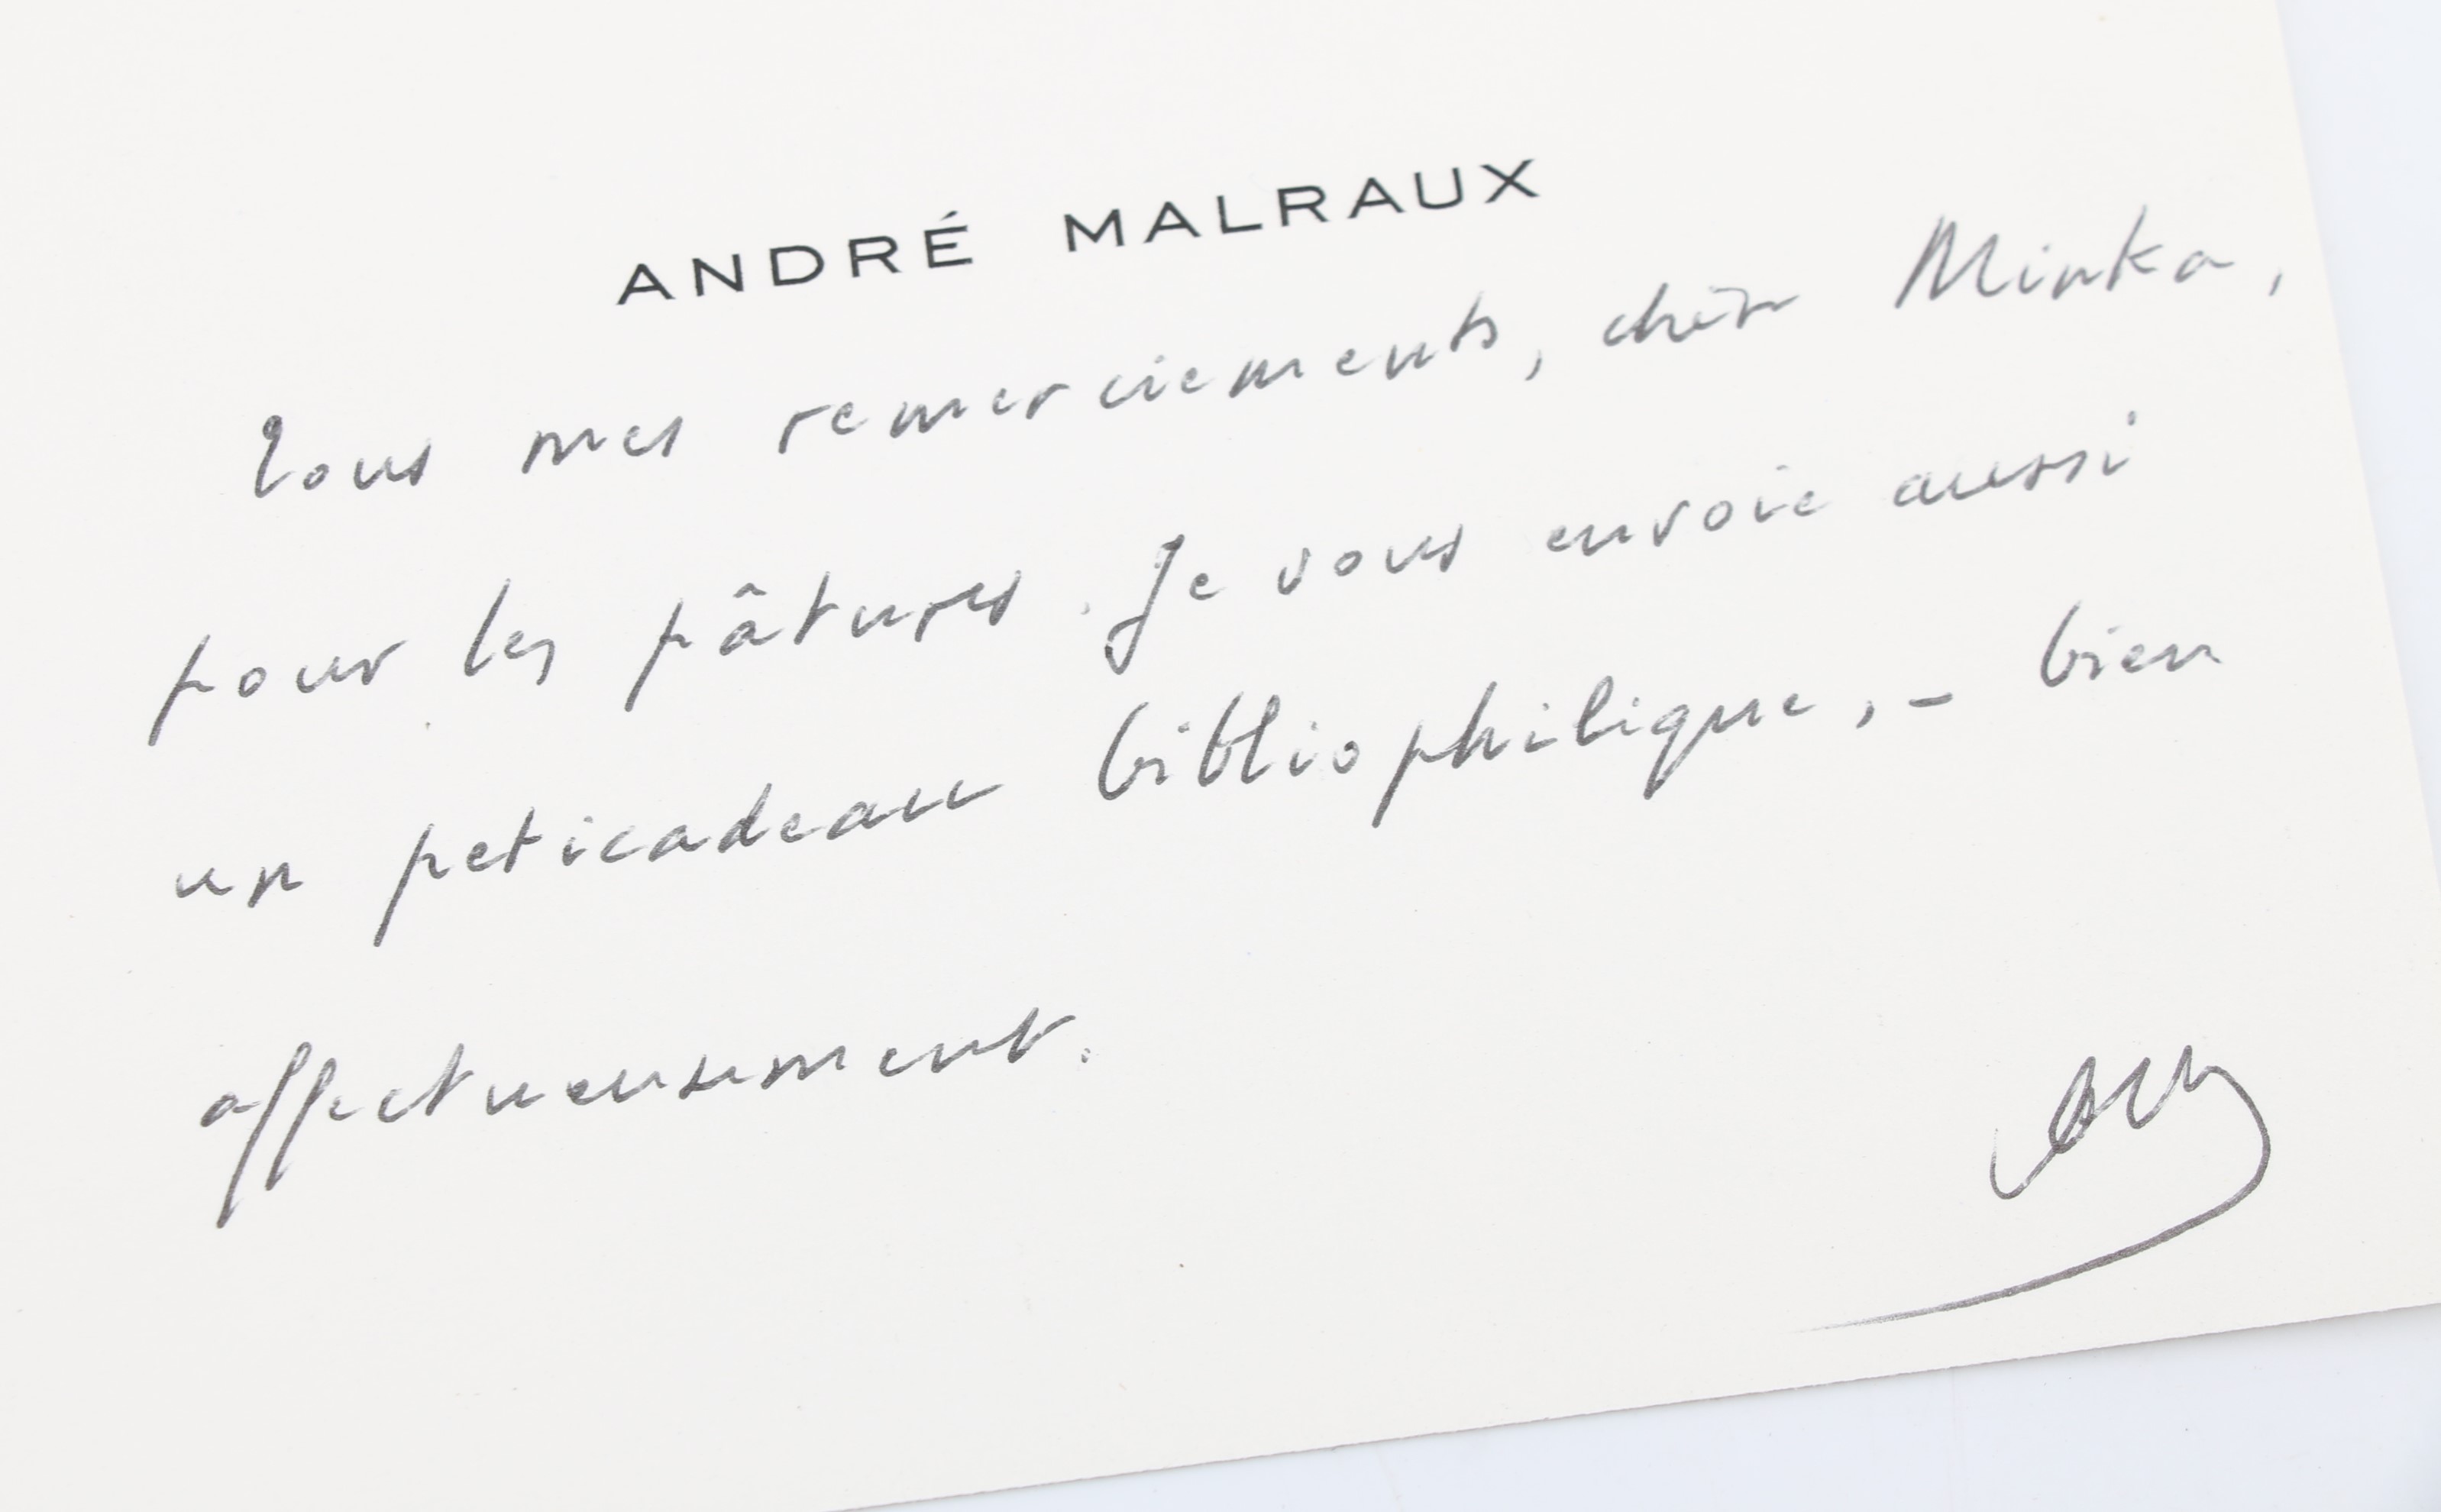 ANDRÉ MALRAUX
Tous mes remerciements, chère Minka,
pour les pâtures. Je vous envoie aussi
un peticadeau bibliophilique, – bien
affectueusement.